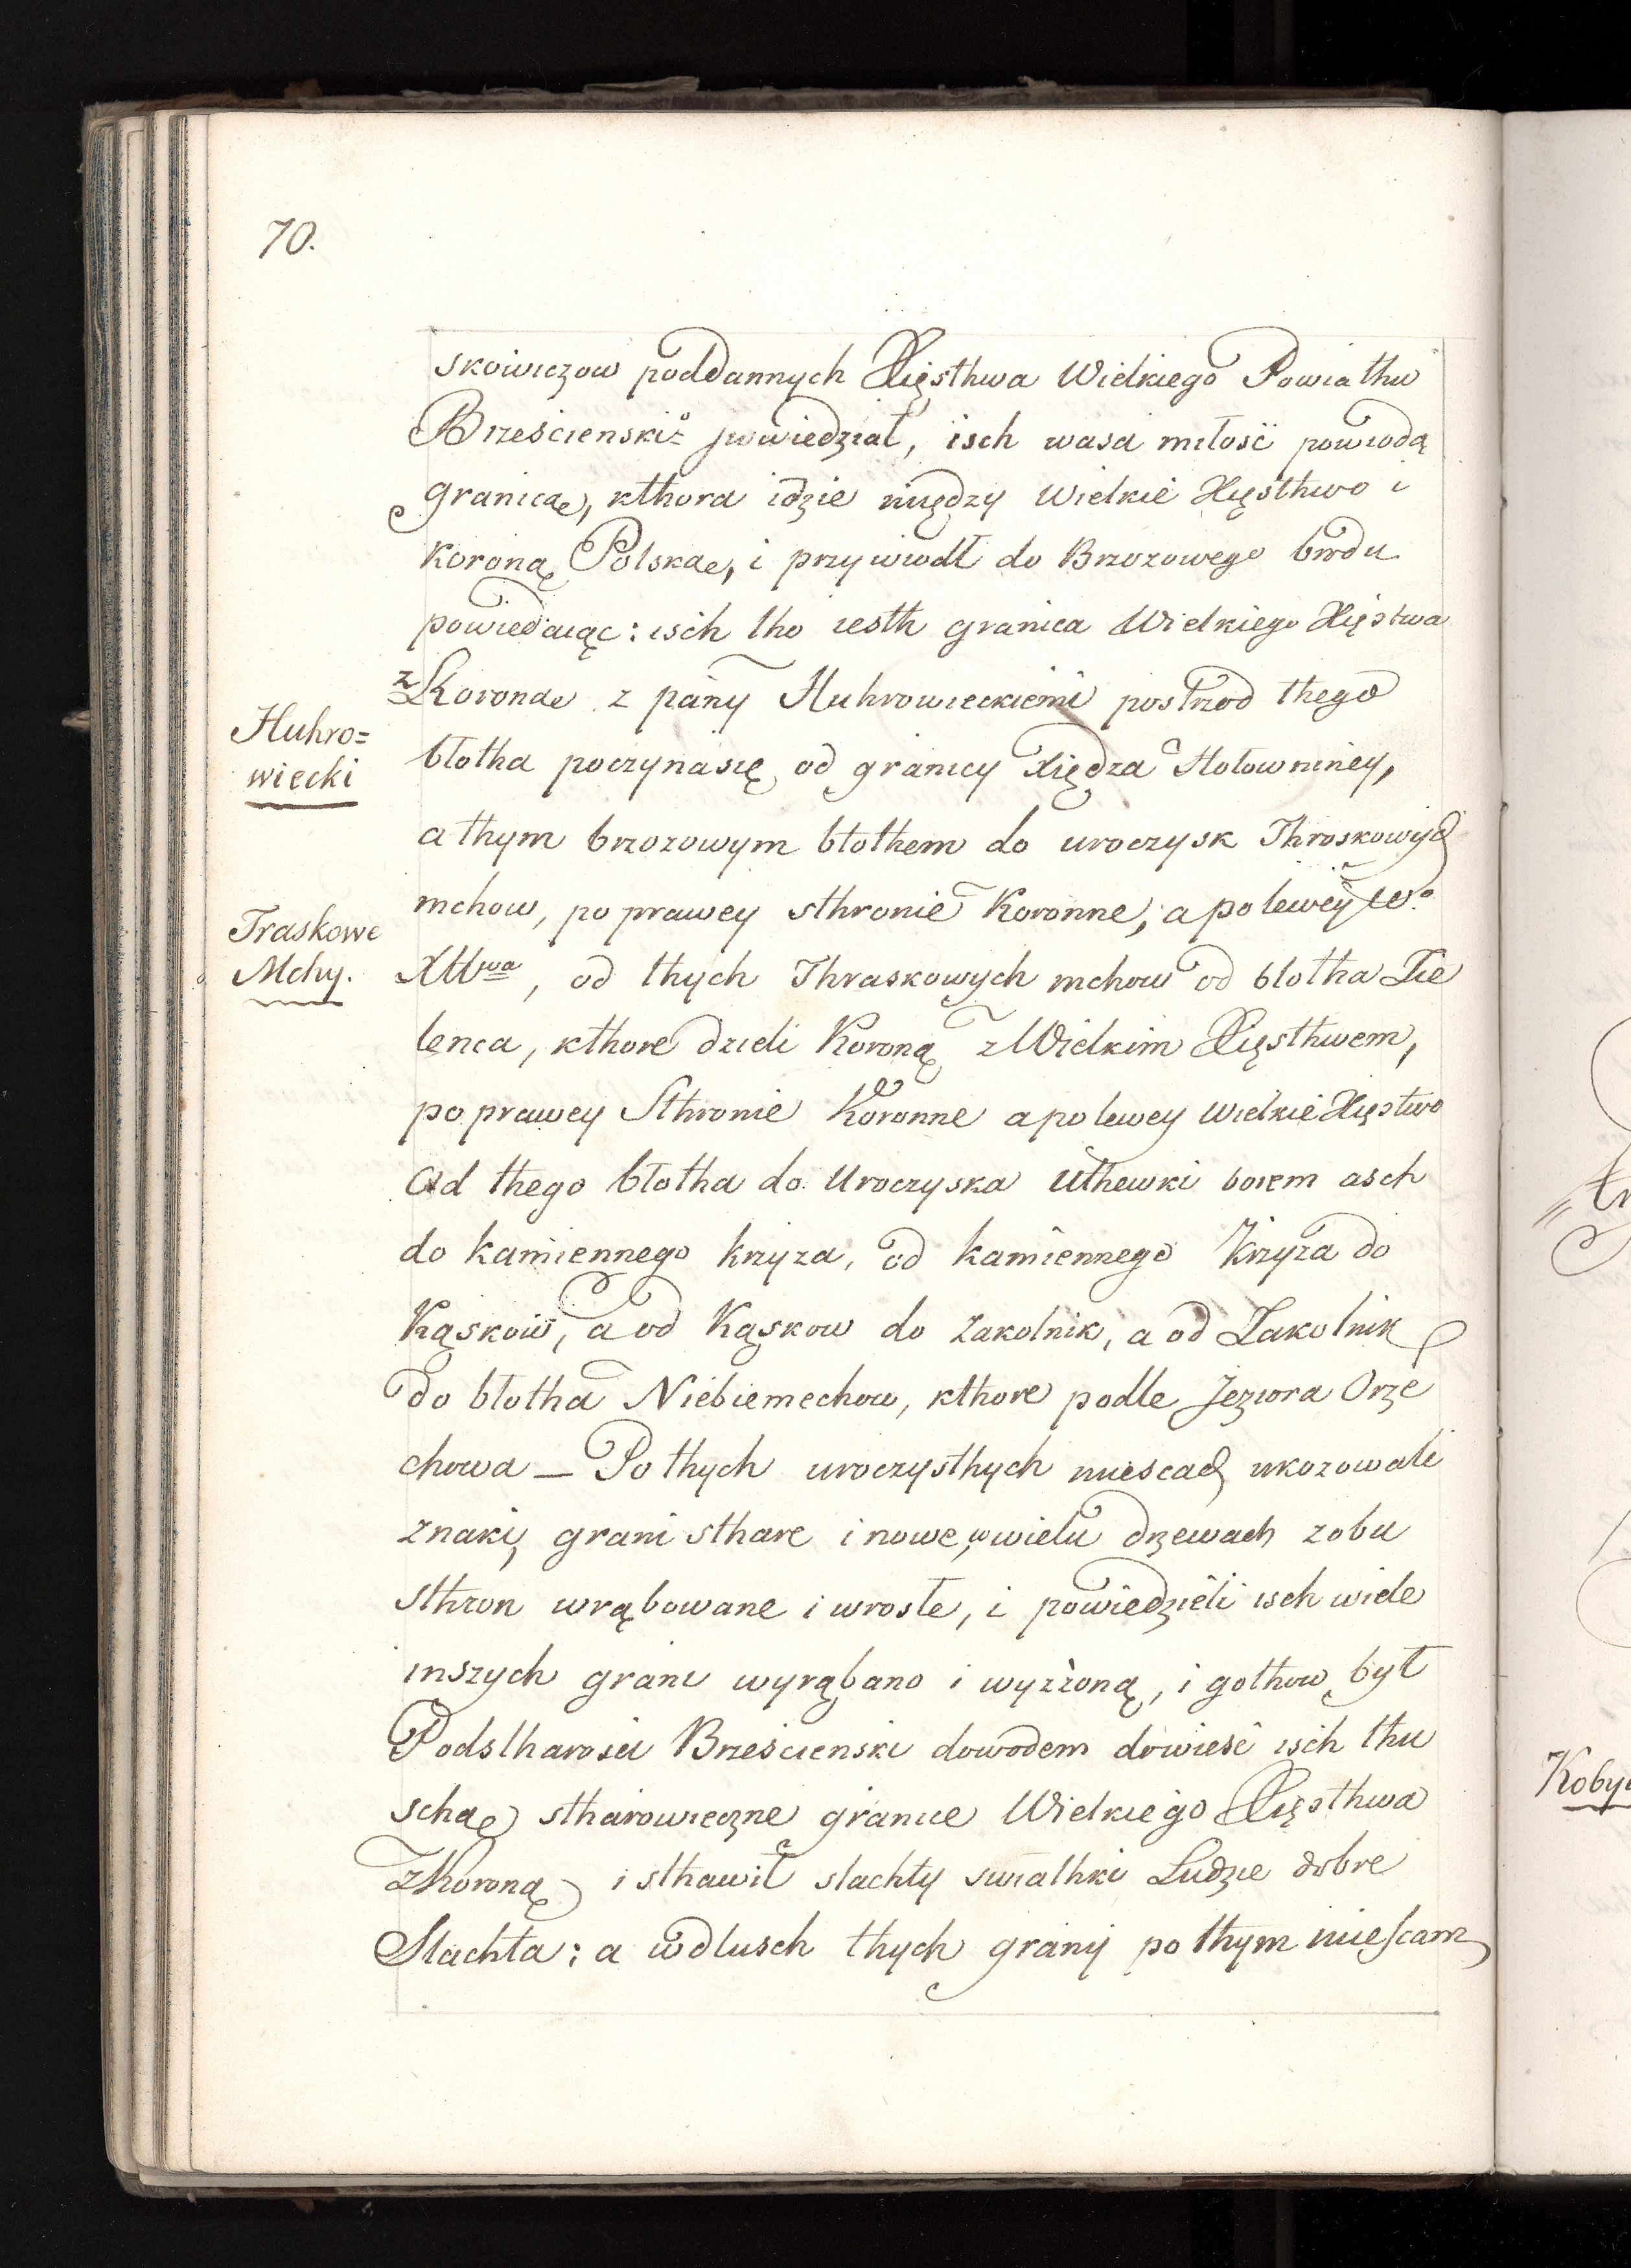 70.
skowiczow poddannych Xięsthwa Wielkiego Powiathu
Brześcienski° powiedział, isch wasa miłość powiodą
granicae, kthora idzie między Wielkie Xięsthwo i
Koroną Polskae, i przywiodł do Brzozowego brodu
powiedaiąc: isch tho iesth granica Wielkiego Xięstwa
z Koronae z pany Huhrowieckiemi postrzod thego
Huhro=
wiecki
błotha poczynasię od granicy Xiędza Hołowniney,
a thym brzozowym błothem do uroczysk Throskowych
mchow, po prawey sthronie Koronne, a po lewey W°
Traskowe
Mchy.
Xttwa, od thych Thraskowych mchow od błotha Tie
lenca, kthore dzieli Koroną z Wielkim Xięsthwem,
po prawey Sthronie Koronne a po lewey Wielkie Xięstwo
Od thego błotha do Uroczyska Uthewki borem asch
do kamiennego krzyza, od kamiennego Krzyza do
Kąskow, a od Kąskow do Zakolnik, a od Zakolnik
do błotha Niebiemechow, kthore podle Jeziora Orze
chowa — Po thych uroczysthych miescach ukozowali
znaki, grani sthare i nowe, w wielu drzewach zobu
Sthron wrąbowane i wrosłe, i powiedzieli isch wiele
inszych grani wyrąbano i wyzżoną, i gothow był
Podstharosci Brzescienski dowodem dowiesć isch thu
schae stharowieczne granice Wielkiego Xięsthwa
z Koroną i sthawił slachty swiathki Ludzie dobre
Slachta: a wdlusch thych grany po thym miescam
Koby